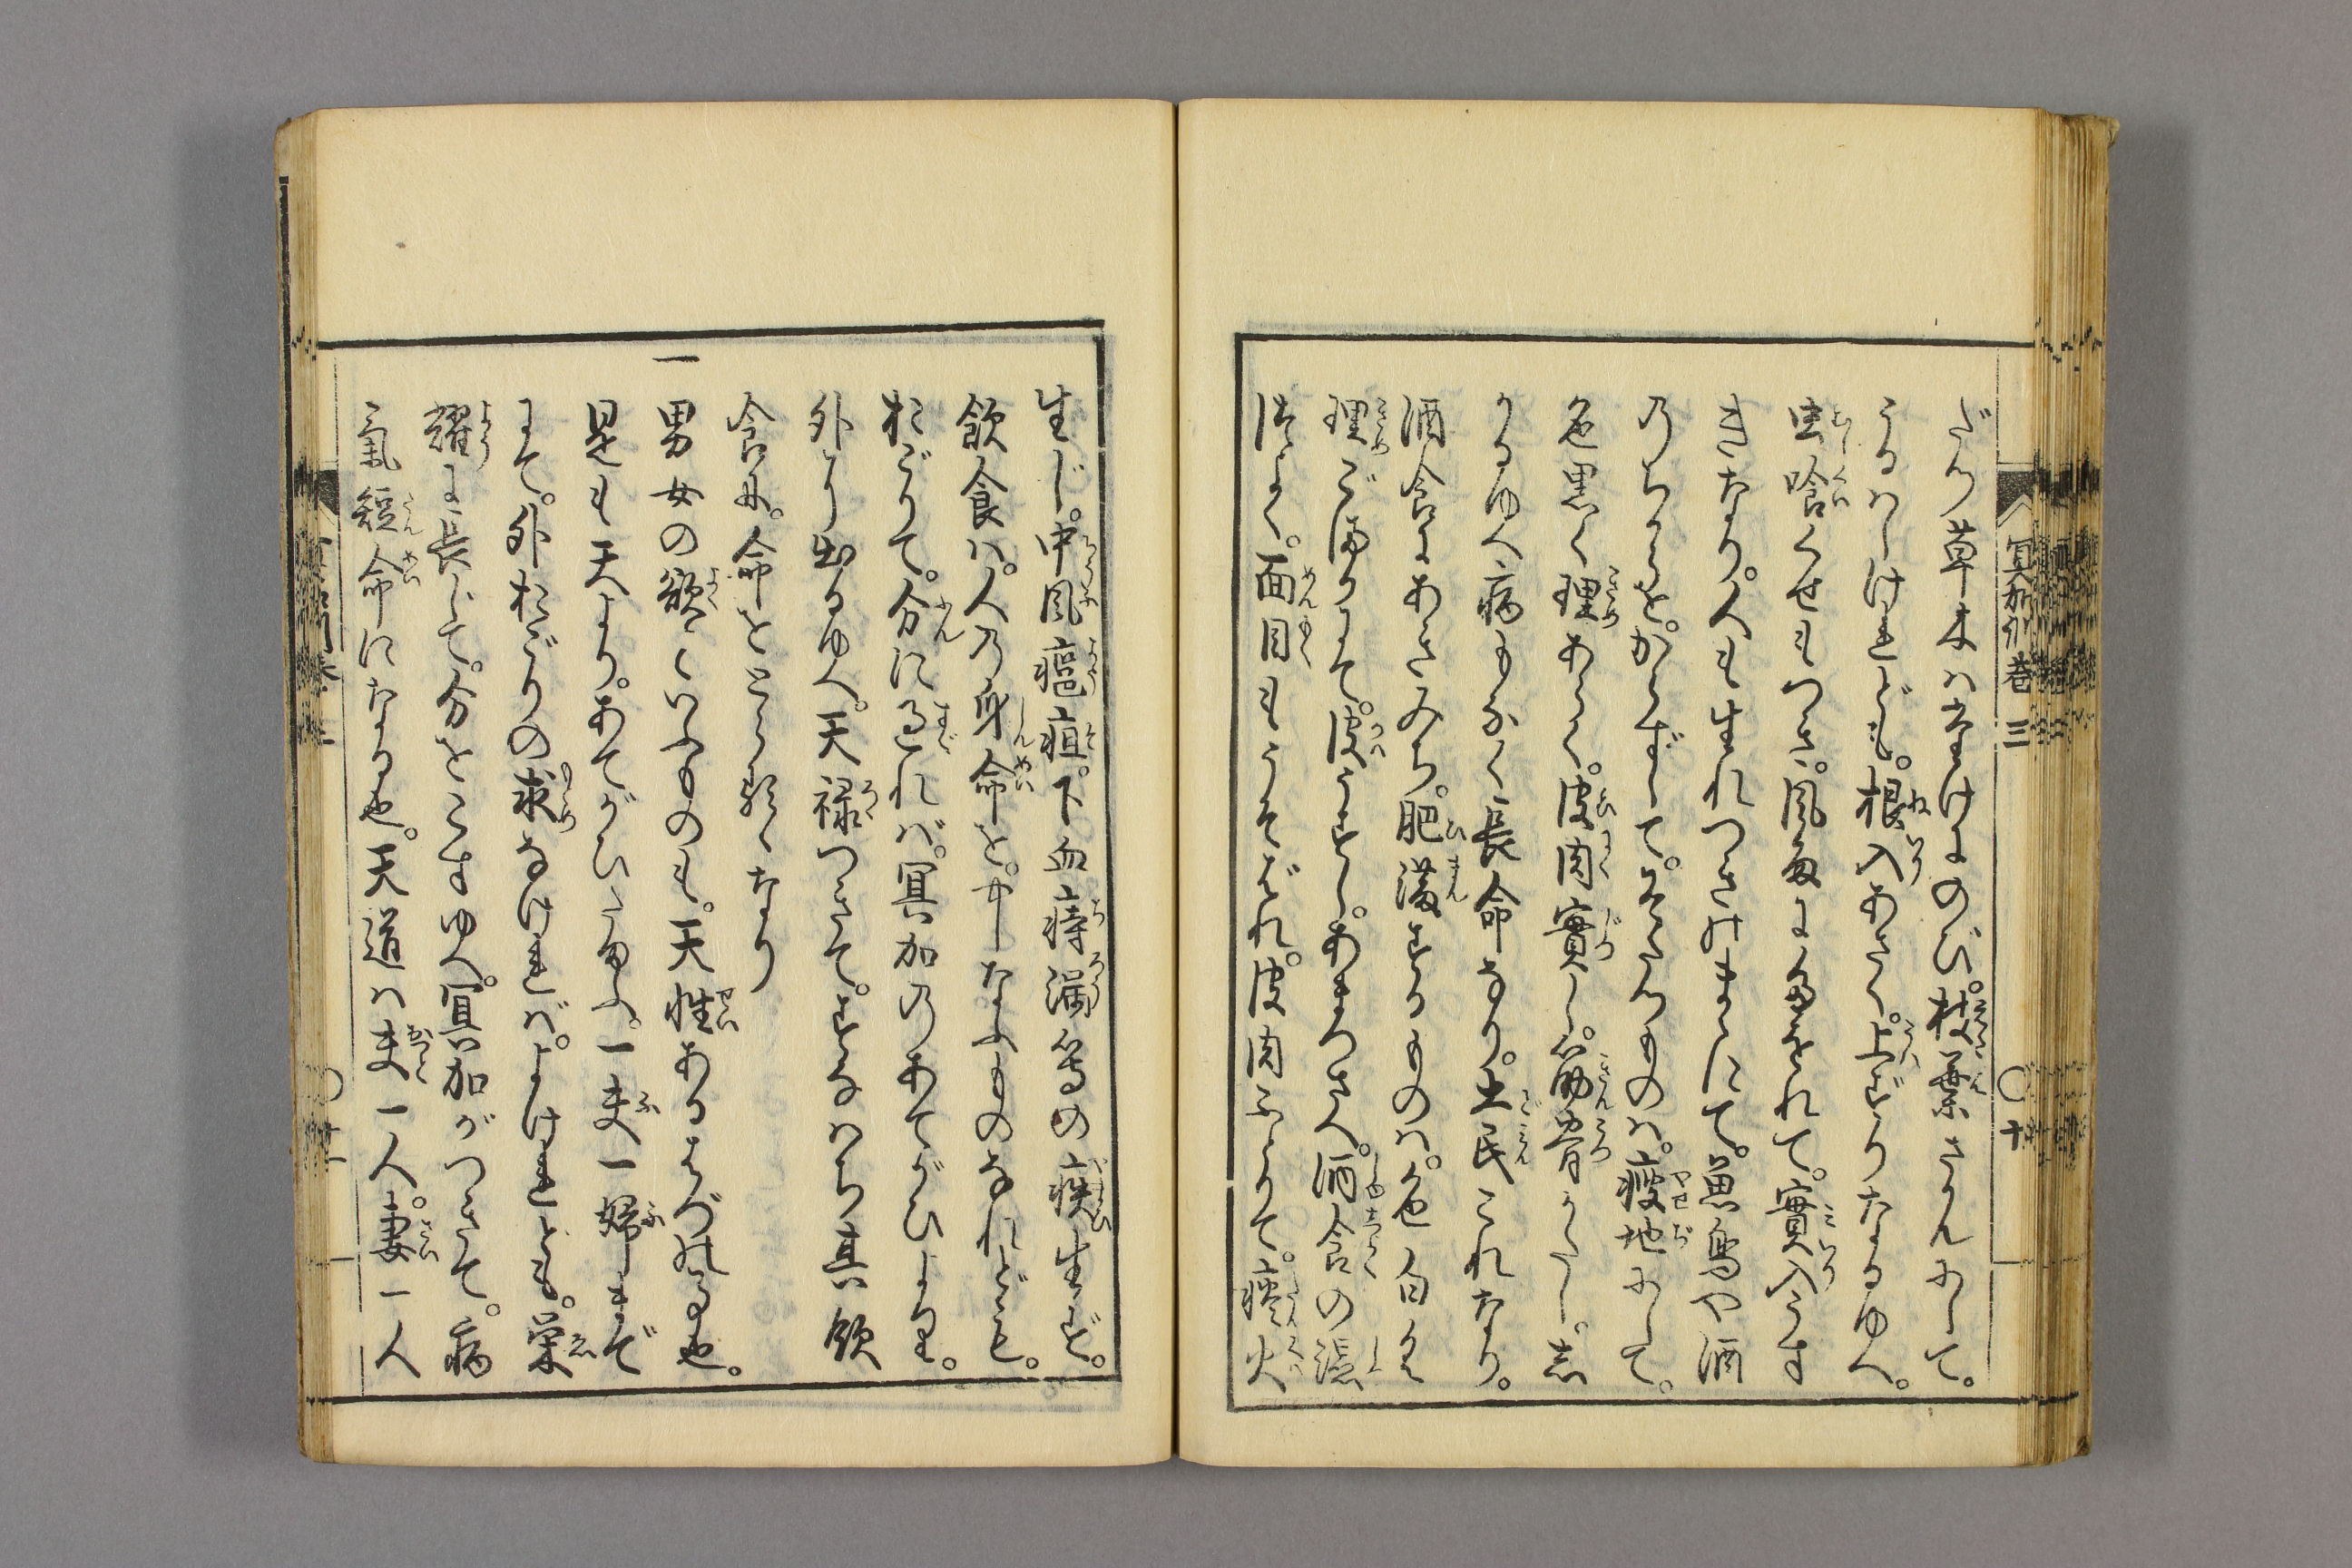 だつ草木はたけにのび。枝葉さかんにして。
うるはしけれども。根入あさく。上ずりなるゆへ。
虫喰くせもつき。風雨にたをれて。實入うす
きなり。人も生れつきのまゝにて。魚鳥や酒
のちからを。からずして。そだつものは。瘦地にして。
色黒く理あらく。皮肉實し。筋骨かたし。志
かるゆへ病もなく長命なり。土民これなり。
酒食にあきみち。肥満するものは。色白く
理こまかにて。皮うすし。あまつさへ。酒食の湿
つよく。面目もうそばれ。皮肉ふとりて。痰火
生じ。中風癰疽。下血痔漏等の疾生ず。
飲食は。人の身命を。やしなふものなれども。
おごりて。分に過れば。冥加のあてがひより。
外より出るゆへ。天禄つきて。すなはち其飲
食に。命をとらるゝなり
一男女の欲といふものも。天性あるべき也。
是も天より。あてがひたまふ。一夫一婦まで
にて。外おごりの求なければ。よけれども。栄
耀に長じて。分をこすゆへ。冥加がつきて。病
氣短命になる也。天道は夫一人。妻一人
冥加訓巻三
〇十